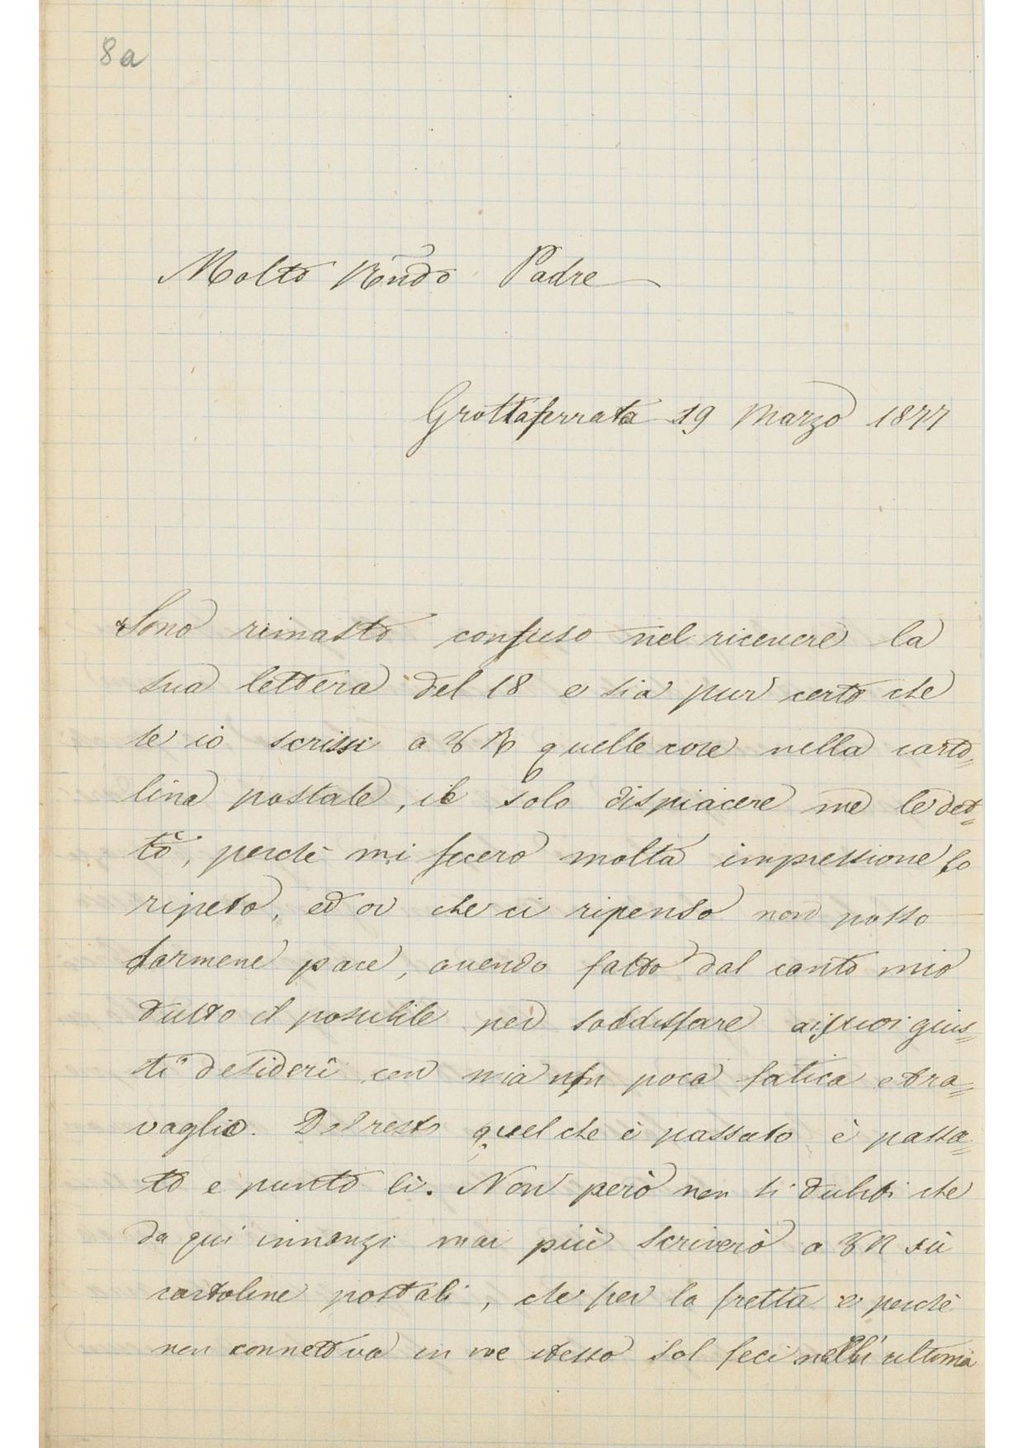 8a
Molto Rñdo Padre
Grottaferrata 19 Marzo 1877
Sono rimasto confuso nel ricevere la
sua lettera del 18 e sia pur certo che
se io scrissi a VR quelle cose nella carto=
lina postale, il solo dispiacere me le det=
tò, perchè mi fecero molta impressione lo
ripeto, ed or che ci ripenso non posso
farmene pace, avendo fatto dal canto mio
tutto il possibile per soddisfare ai suoi gius=
ti desideri con mia non poca fatica e tra=
vaglio. Del resto quel che è passato è passa=
to e punto lì. Non però non si dubiti che
da qui innanzi mai più scriverò a VR sù
cartoline postali, che per la fretta e perchè
non connetteva in me stesso sol feci nell' ultima